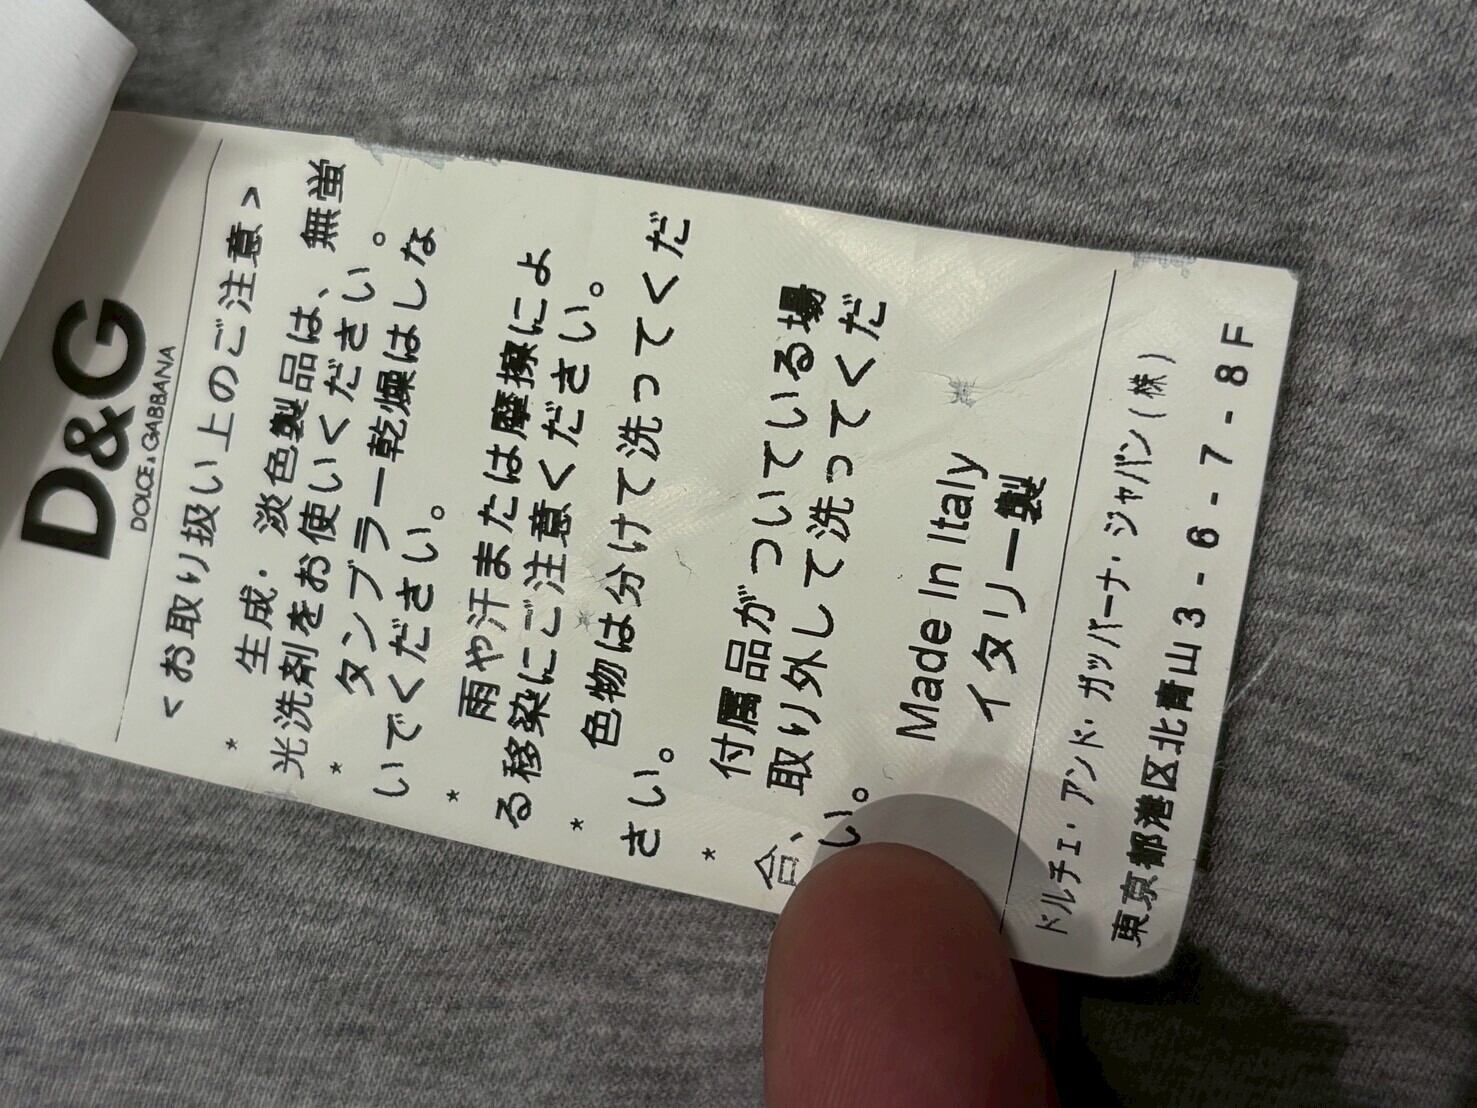 D&G
DOLCE & GABBANA
<お取り扱い上のご注意>
* 生成・淡色製品は、無蛍
光洗剤をお使いください。
* タンブラー乾燥はしな
いでください。
* 雨や汗または摩擦によ
る移染にご注意ください。
* 色物は分けて洗ってくだ
さい。
* 付属品がついている場
合、取り外して洗ってくだ
い。
Made In Italy
イタリー製
ドルチェ・アンド・ガッバーナ・ジャパン(株)
東京都港区北青山3-6-7-8F